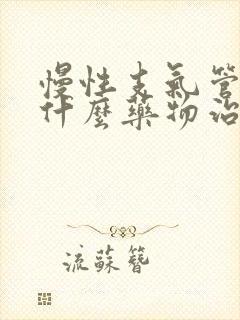 慢性支氣管
什麼藥物治
流蘇簪